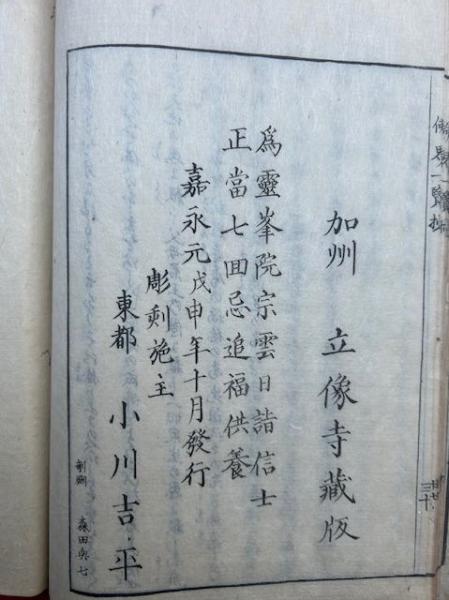 加州 立像寺藏版
爲靈峯院宗雲日詣信士
正當七回忌追福供養
嘉永元戊申年十月發行
彫刻施主
東都 小川吉平
森田與七